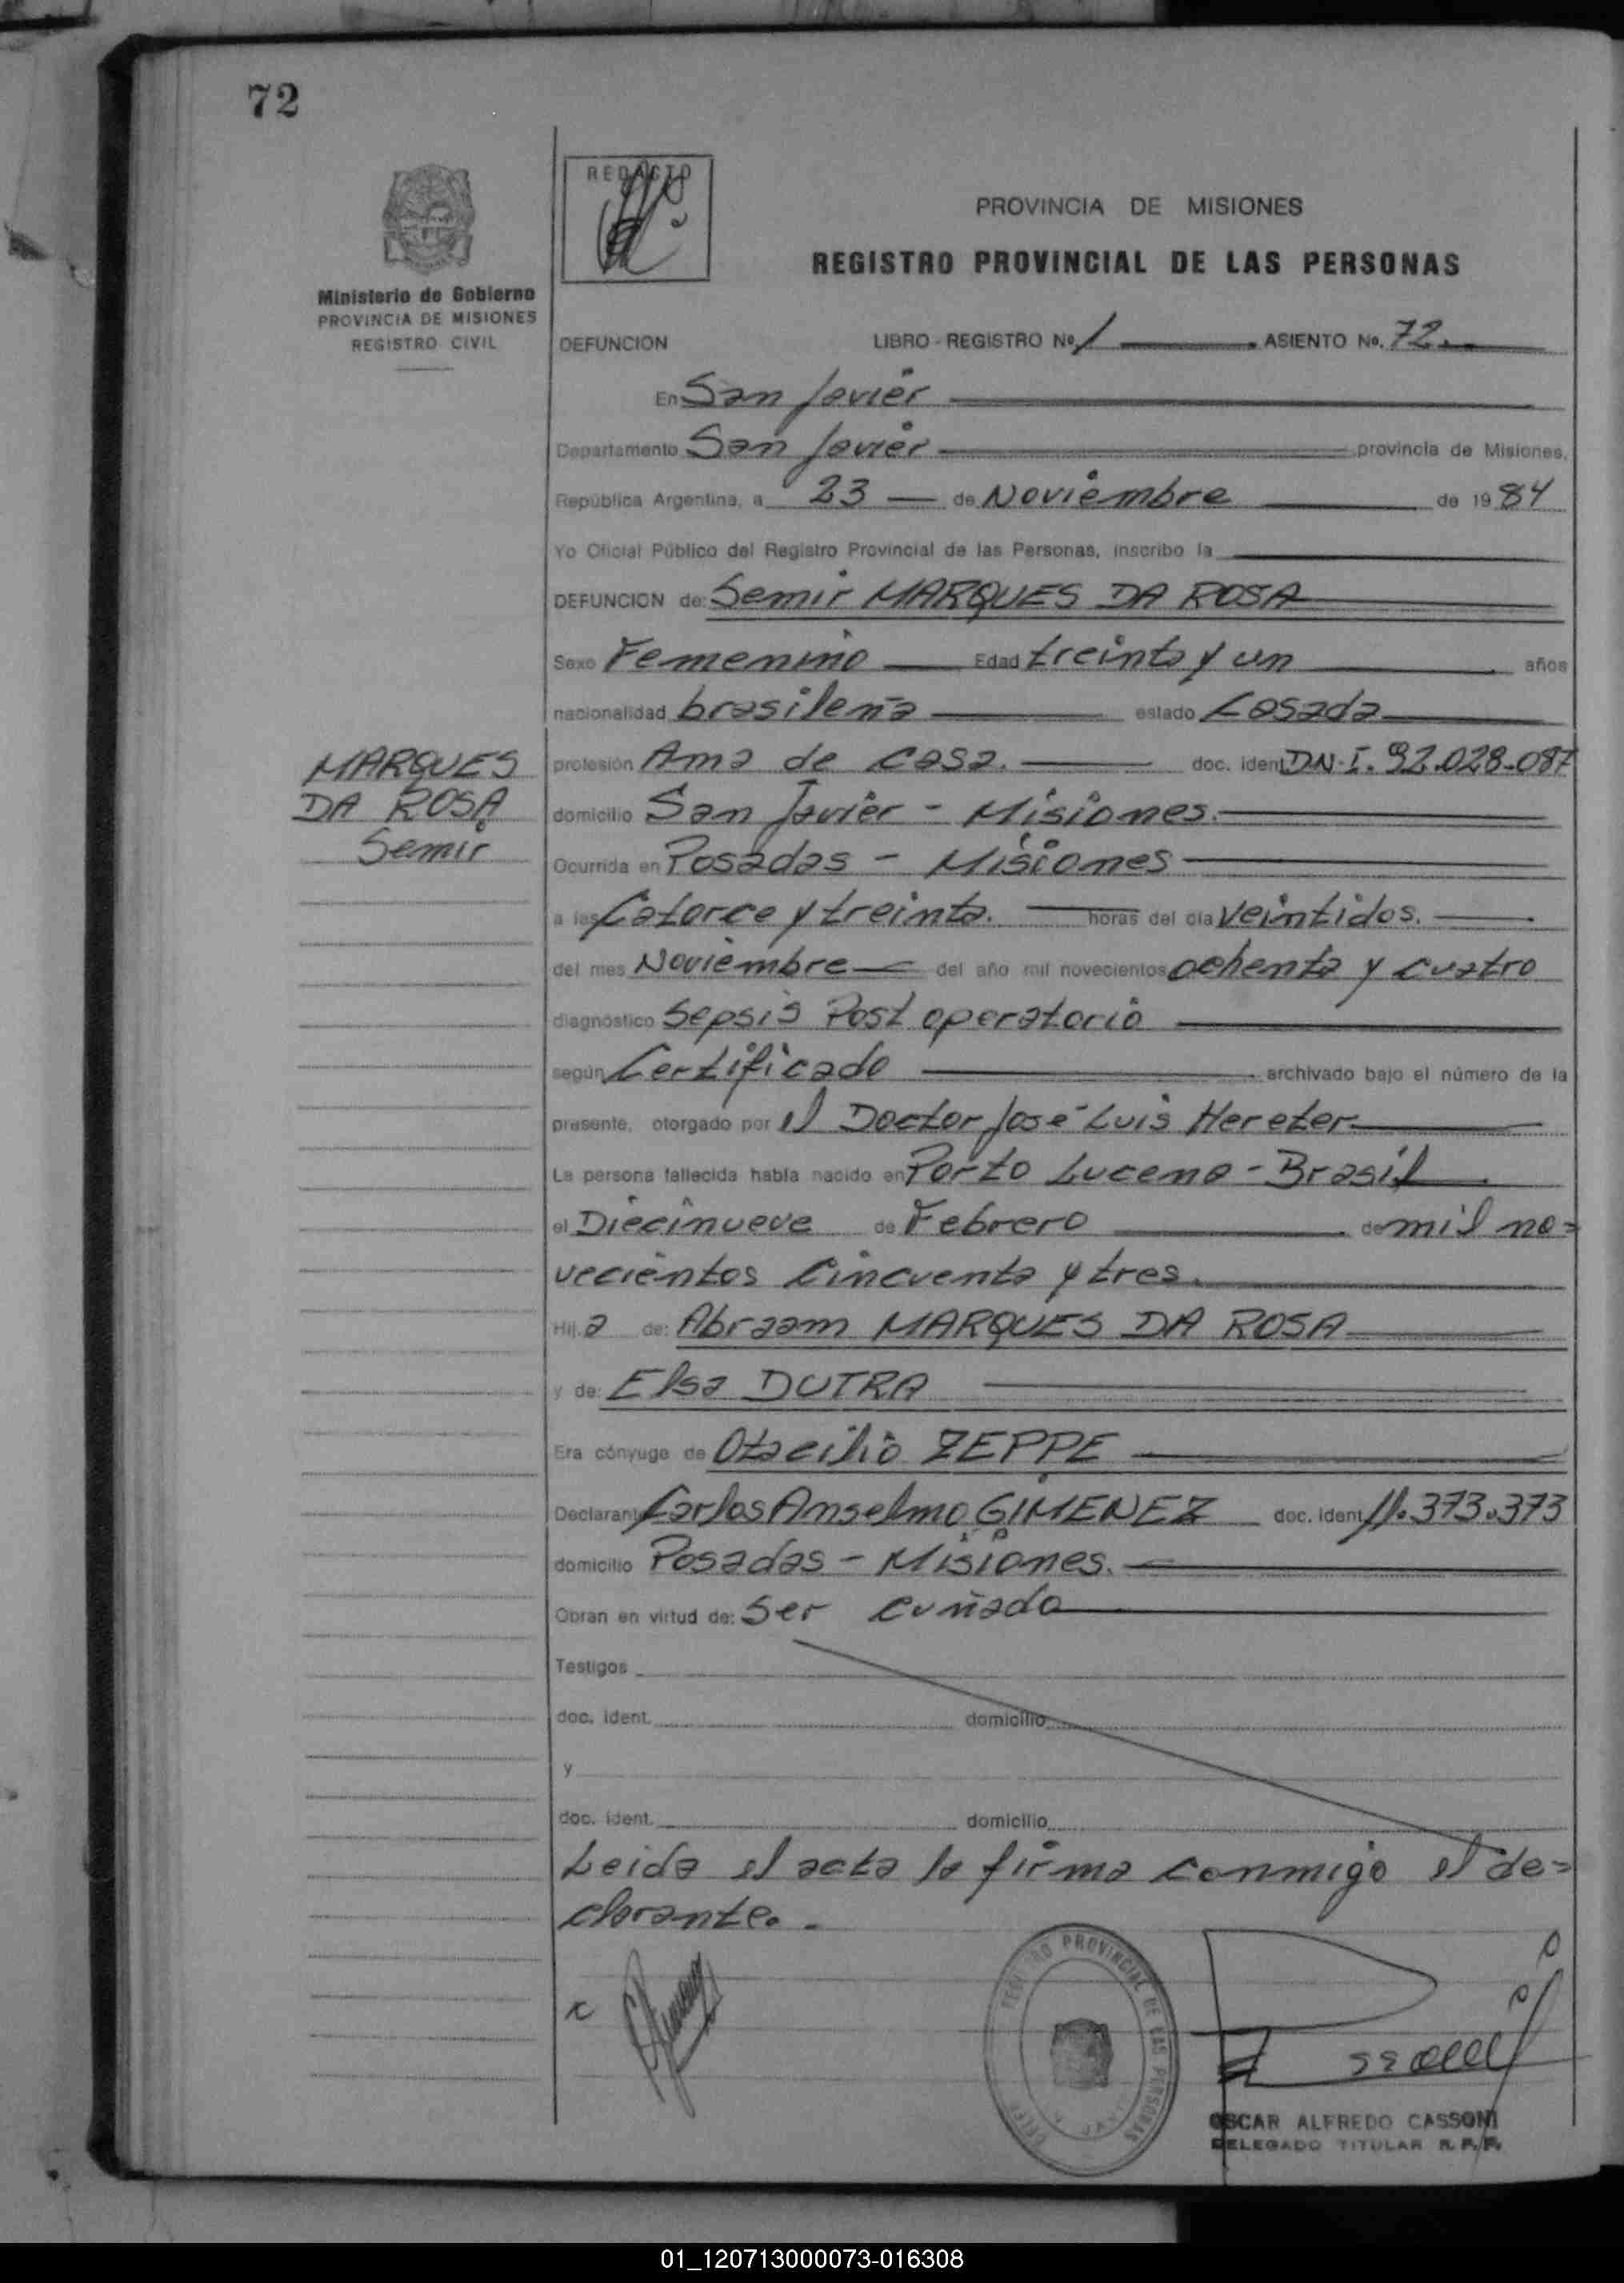 72
REDACTO
PROVINCIA DE MISIONES
REGISTRO PROVINCIAL DE LAS PERSONAS
Ministerio de Gobierno
PROVINCIA DE MISIONES
REGISTRO CIVIL
DEFUNCION LIBRO - REGISTRO No. 1 ASIENTO No. 72.
En San Javier
Departamento San Javier provincia de Misiones,
República Argentina, a 23 de Noviembre de 1984
Yo Oficial Público del Registro Provincial de las Personas, inscribo la
DEFUNCION de: Semir MARQUES DA ROSA
Sexo Femenino Edad treinta y un años
nacionalidad brasileña estado Casada
MARQUES
DA ROSA
Semir
profesión Ama de casa. doc. ident. D.N.I. 92.028.087
domicilio San Javier - Misiones.
Ocurrida en Posadas - Misiones
a las Catorce y treinta. horas del día veintidos.
del mes Noviembre del año mil novecientos ochenta y cuatro
diagnóstico Sepsis Post operatorio
según Certificado archivado bajo el número de la
presente, otorgado por el Doctor José Luis Hereter
La persona fallecida había nacido en Porto Lucena - Brasil
el Diecinueve de Febrero de mil no=
vecientos Cincuenta y tres.
Hij.a de: Abraam MARQUES DA ROSA
y de: Elsa DUTRA
Era cónyuge de Otacilio ZEPPE
Declarante Carlos Anselmo GIMENEZ doc. ident. 11.373.373
domicilio Posadas - Misiones.
Obran en virtud de: Ser cuñado
Testigos
doc. ident. domicilio
y
doc. ident. domicilio
Leida el acta la firma conmigo el de=
clarante. -
REGISTRO PROVINCIAL DE LAS PERSONAS
OSCAR ALFREDO CASSONI
DELEGADO TITULAR R. P. P.
01_120713000073-016308